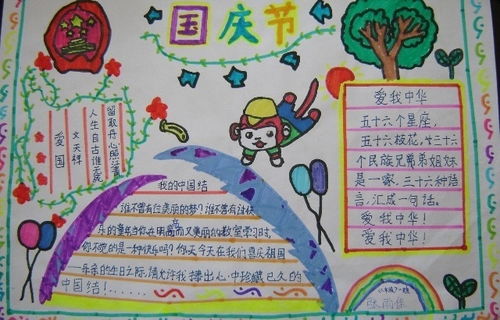 国庆节
爱国
文天祥
人生自古谁无死
留取丹心照汗青
我的中国结
谁不曾有过美丽的梦?谁不曾有过快
乐的童年当你在明亮而又美丽的教室学习时,
你不觉的是一种快乐吗?
今天在我们喜庆祖国
亲的生日之际,请允许我捧出心中珍藏已久的
中国结!……
爱我中华
五十六个星座,
五十六枝花,五十六
个民族兄弟姐妹
是一家,五十六种语
言,汇成一句话。
爱我中华!
爱我中华!